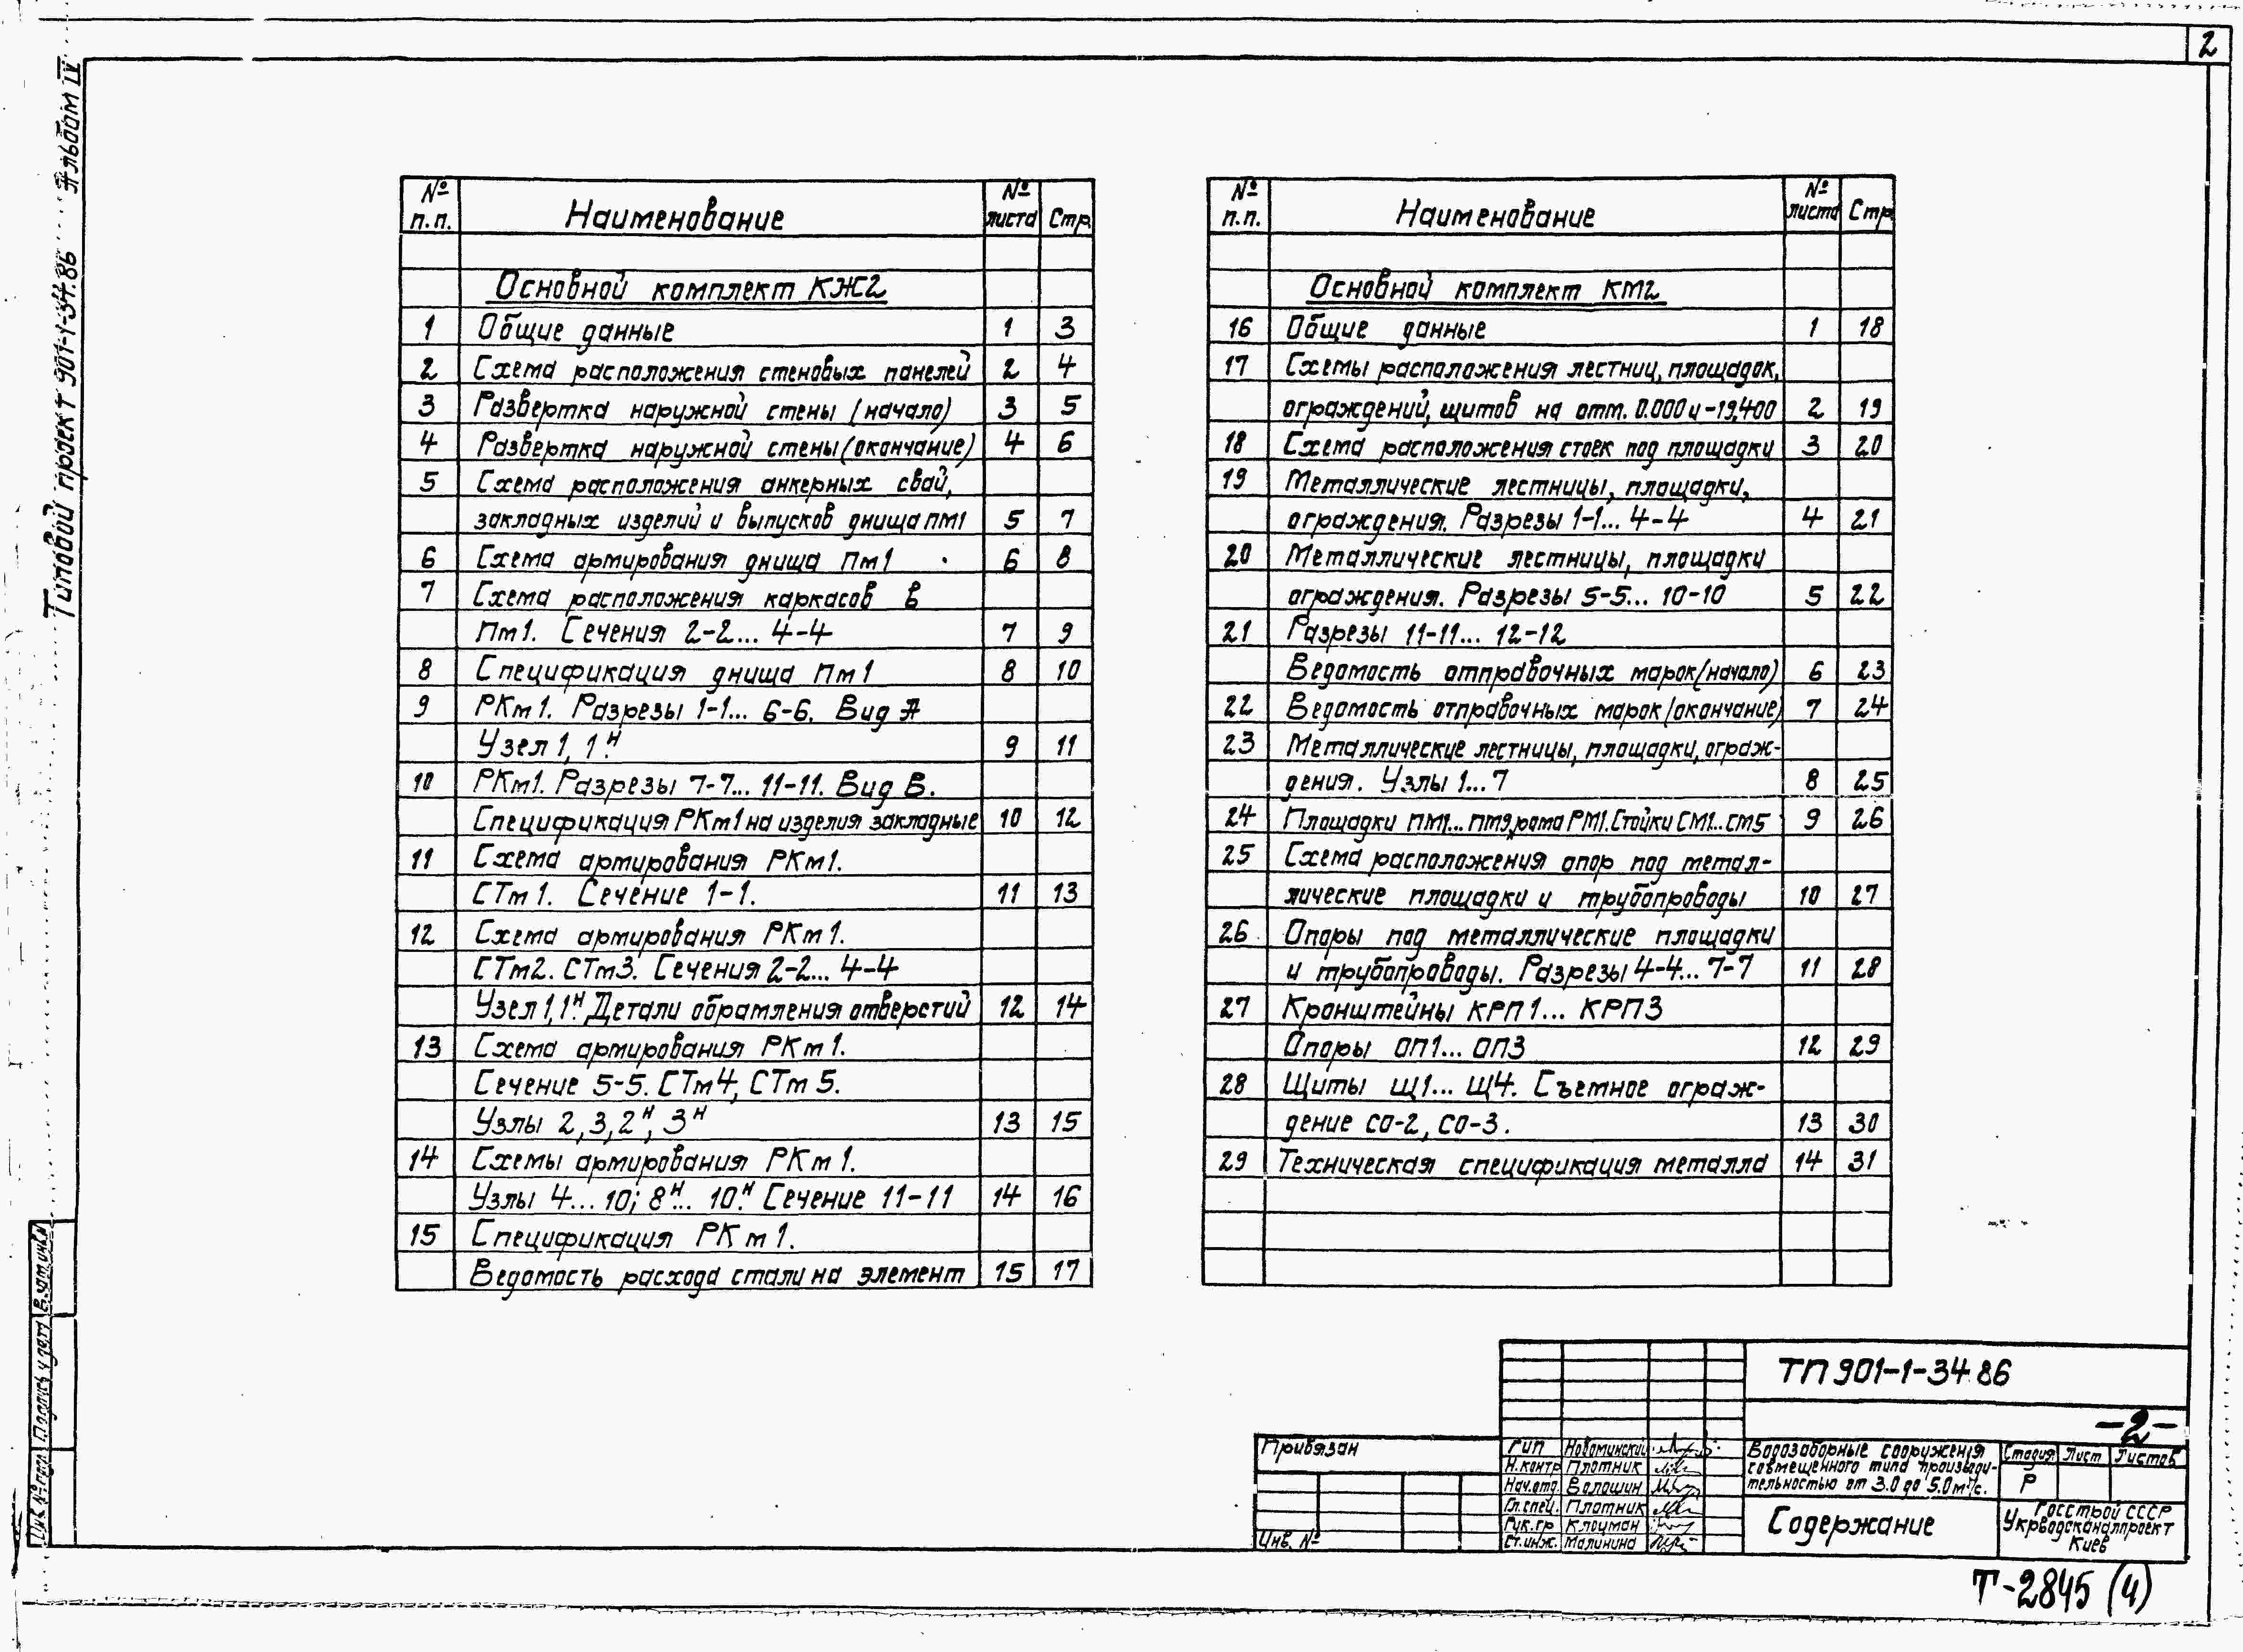 2
Типовой проект 901-1-34.86 Альбом IV
№ п.п. Наименование № листа Стр.
Основной комплект КЖ2
1 Общие данные 1 3
2 Схема расположения стеновых панелей 2 4
3 Развертка наружной стены (начало) 3 5
4 Развертка наружной стены (окончание) 4 6
5 Схема расположения анкерных свай,
закладных изделий и выпусков днища ПМ1 5 7
6 Схема армирования днища Пм1 6 8
7 Схема расположения каркасов в
Пм1. Сечения 2-2... 4-4 7 9
8 Спецификация днища Пм1 8 10
9 РКм1. Разрезы 1-1... 6-6. Вид А
Узел 1, 1ᴴ. 9 11
10 РКм1. Разрезы 7-7... 11-11. Вид В.
Спецификация РКм1 на изделия закладные 10 12
11 Схема армирования РКм1.
СТм1. Сечение 1-1. 11 13
12 Схема армирования РКм1.
СТм2. СТм3. Сечения 2-2... 4-4
Узел 1, 1ᴴ. Детали обрамления отверстий 12 14
13 Схема армирования РКм1.
Сечение 5-5. СТм4, СТм5.
Узлы 2, 3, 2ᴴ, 3ᴴ 13 15
14 Схемы армирования РКм1.
Узлы 4... 10; 8ᴴ... 10ᴴ. Сечение 11-11 14 16
15 Спецификация РКм1.
Ведомость расхода стали на элемент 15 17
№ п.п. Наименование № листа Стр
Основной комплект КМ2
16 Общие данные 1 18
17 Схемы расположения лестниц, площадок,
ограждений, щитов на отм. 0.000 и -19,400 2 19
18 Схема расположения стоек под площадки 3 20
19 Металлические лестницы, площадки,
ограждения. Разрезы 1-1... 4-4 4 21
20 Металлические лестницы, площадки
ограждения. Разрезы 5-5... 10-10 5 22
21 Разрезы 11-11... 12-12
Ведомость отправочных марок (начало) 6 23
22 Ведомость отправочных марок (окончание) 7 24
23 Металлические лестницы, площадки, ограж-
дения. Узлы 1...7 8 25
24 Площадки ПМ1... ПМ9, рама РМ1. Стойки СМ1... СМ5 9 26
25 Схема расположения опор под метал-
лические площадки и трубопроводы 10 27
26 Опоры под металлические площадки
и трубопроводы. Разрезы 4-4... 7-7 11 28
27 Кронштейны КРП1... КРП3
Опоры ОП1... ОП3 12 29
28 Щиты Щ1... Щ4. Съемное ограж-
дение СО-2, СО-3. 13 30
29 Техническая спецификация металла 14 31
ТП 901-1-34.86
-2-
Привязан
Инв. №
ГИП Новоминский
Н.контр Плотник
Нач.отд. Волошин
Гл.спец. Плотник
Рук.гр Клоцман
Ст.инж. Малинина
Водозаборные сооружения
совмещенного типа производи-
тельностью от 3.0 до 5.0 м³/с.
Стадия Лист Листов
Р
Содержание
Госстрой СССР
Укрводоканалпроект
Киев
Т-2845 (4)
Инв. № подл Подпись и дата Взам.инв.№